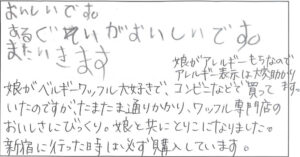 おいしいです。
あるぐそいがおいしいです。
またいきます
娘がアレルギーもちなので
アレルギー表示は大助かり
ます。
娘がベルギーワッフル大好きで、コンビニなどで買って
いたのですが、たまたま通りかかり、ワッフル専門店の
おいしさにびっくり。娘と共にとりこになりました。
新宿に行った時は必ず購入しています。